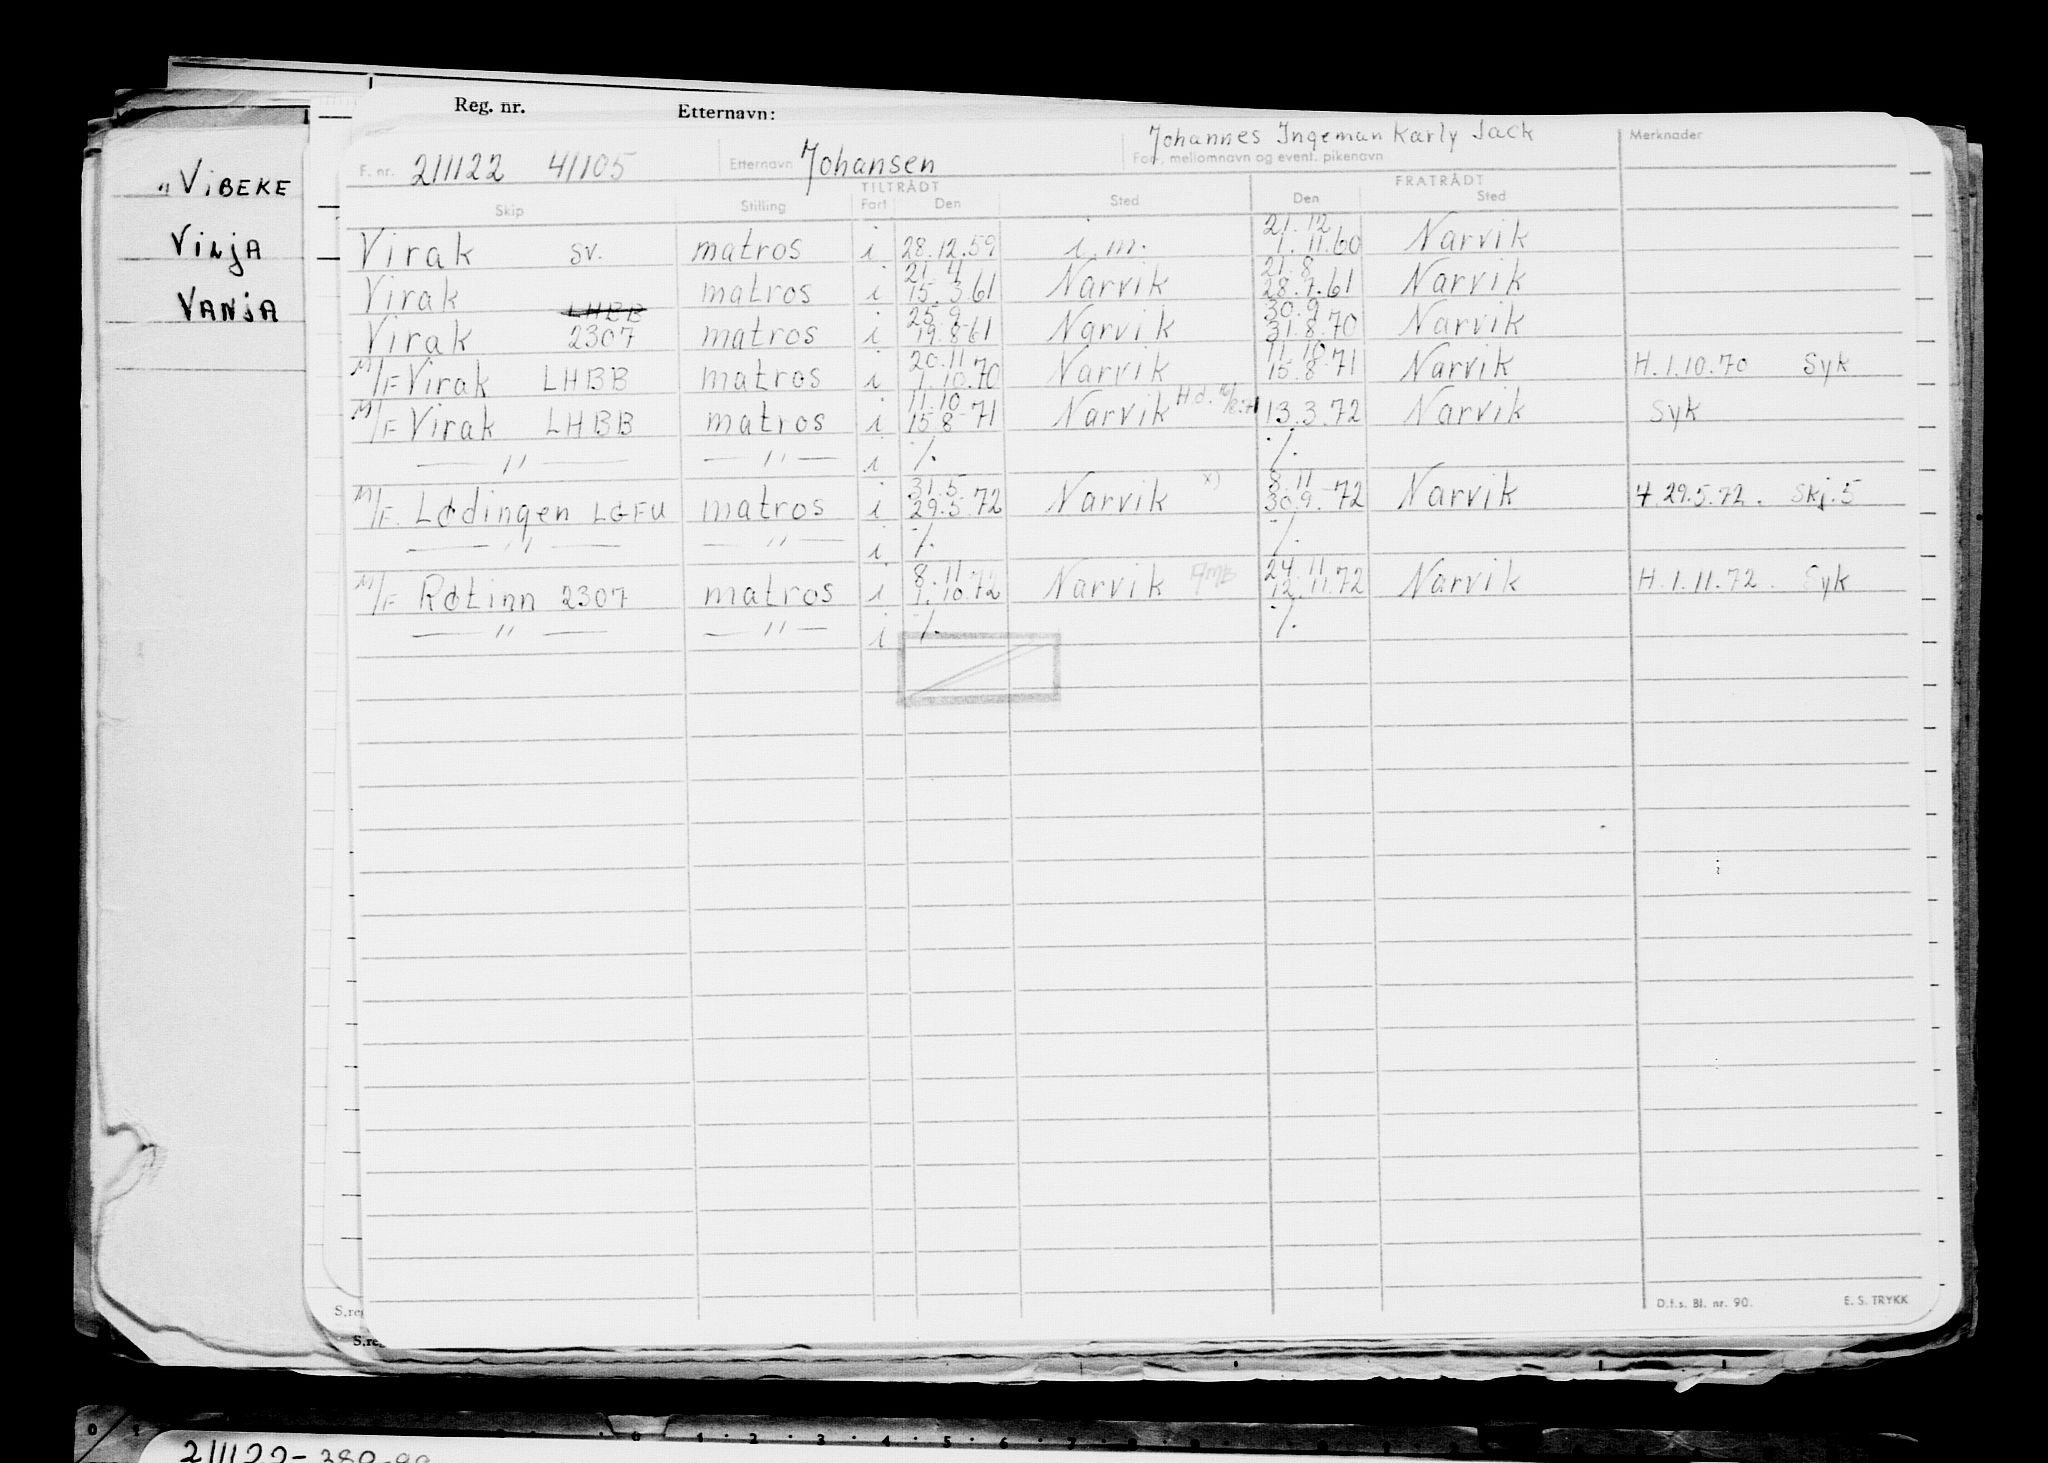 Reg. nr. Etternavn:
" VIBEKE
VILJA
VANJA
F. nr. 211122 41105 Etternavn Johansen Johannes Ingeman Karly Jack
For-, mellomnavn og event. pikenavn
Merknader
TILTRÅDT FRATRÅDT
Skip Stilling Fart Den Sted Den Sted
21.12
Virak sv. matros i 28.12.59 i.m. 1.11.60 Narvik
21.4 21.8
Virak matros i 15.3.61 Narvik 28.7.61 Narvik
LHBB 25.9 30.9
Virak 2307 matros i 19.8.61 Narvik 31.8.70 Narvik
20.11 11.10
M/F Virak LHBB matros i 1.10.70 Narvik 15.8.71 Narvik H.1.10.70 Syk
11.10
M/F Virak LHBB matros i 15.8.71 Narvik H.d. 13.3.72 Narvik Syk
— " — — " — i ./. ./.
31.5 8.11
M/F. Lødingen LGFU matros i 29.5.72 Narvik x) 30.9.72 Narvik 4.29.5.72. Skj.5
— " — — " — i ./. ./.
8.11 24.11
M/F Røtinn 2307 matros i 1.10.72 Narvik 12.11.72 Narvik H.1.11.72. Syk
— " — — " — i ./. ./.
D.f.s. Bl. nr. 90. E. S. TRYKK
S.reg
S.reg
0 1 2 3 4 5 6 7 8